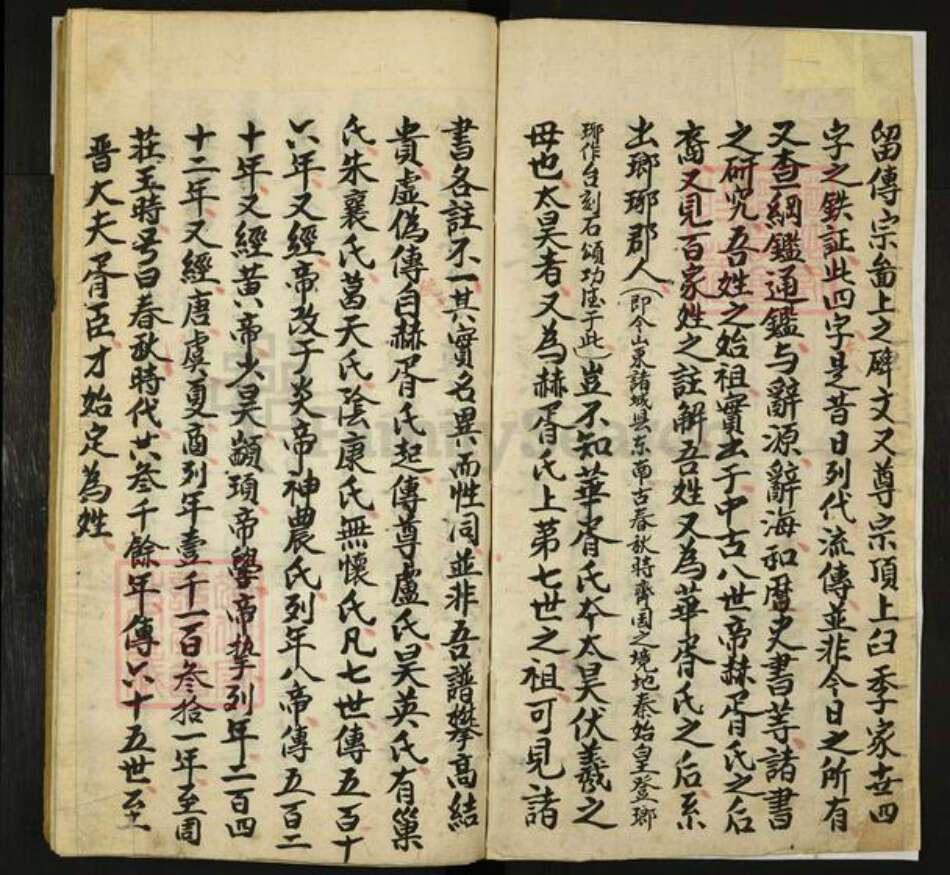 留傳宗畲上之碑文又尊宗頂上臼季家廿四
字之鉄証此四字是昔日列代流傳並非今日之所有
又查綱鑑通鑑与辭源辭海和曆史書等諸書
之研究吾姓之始祖實出于中古八世帝赫胥氏之后
裔又見百家姓之註解吾姓又為華胥氏之后系
出瑯琊郡人(即今山東諸城县东南古春秋時齊国之境地秦始皇登瑯
琊作台刻石頌功法于此)豈不知華胥氏夲太昊伏羲之
母也太昊者又為赫胥氏上第七世之祖可見諸
書各註不一其實名異而性同並非吾譜攀高結
貴虛偽傳自赫胥氏起傳尊盧氏昊英氏有巢
氏朱襄氏葛天氏陰康氏無懷氏凡七世傳五百十
六年又經帝改于炎帝神農氏列年八帝傳五百二
十年又經黃帝少昊顓頊帝嚳帝摯列年二百四
十二年又經唐虞夏商列年壹千一百叁拾一年至周
莊王時号曰春秋時代共叁千餘年傳六十五世至
晋大夫胥臣才始定為姓
FamilySearch